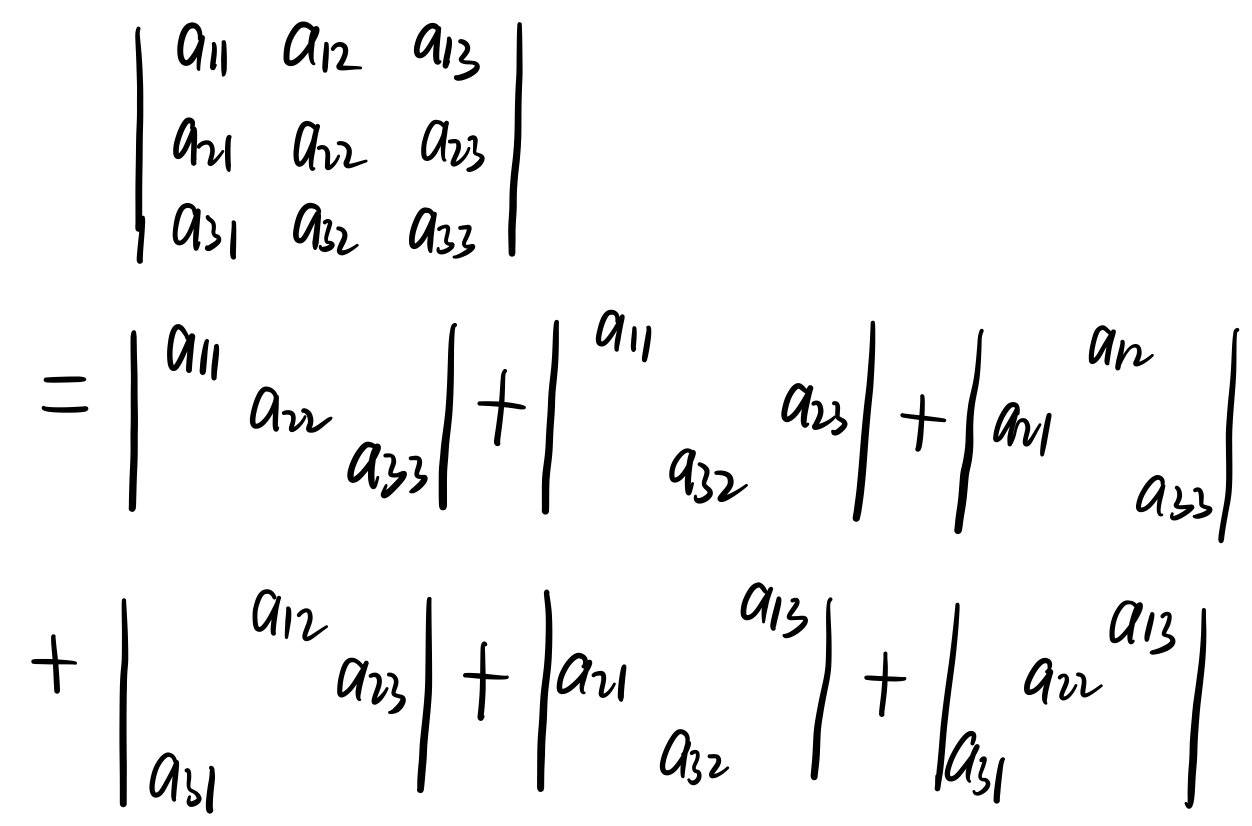 | a11 a12 a13 |
| a21 a22 a23 |
| a31 a32 a33 |
= | a11 a22 a33 | + | a11 a23 a32 | + | a12 a21 a33 |
+ | a12 a23 a31 | + | a13 a21 a32 | + | a13 a22 a31 |